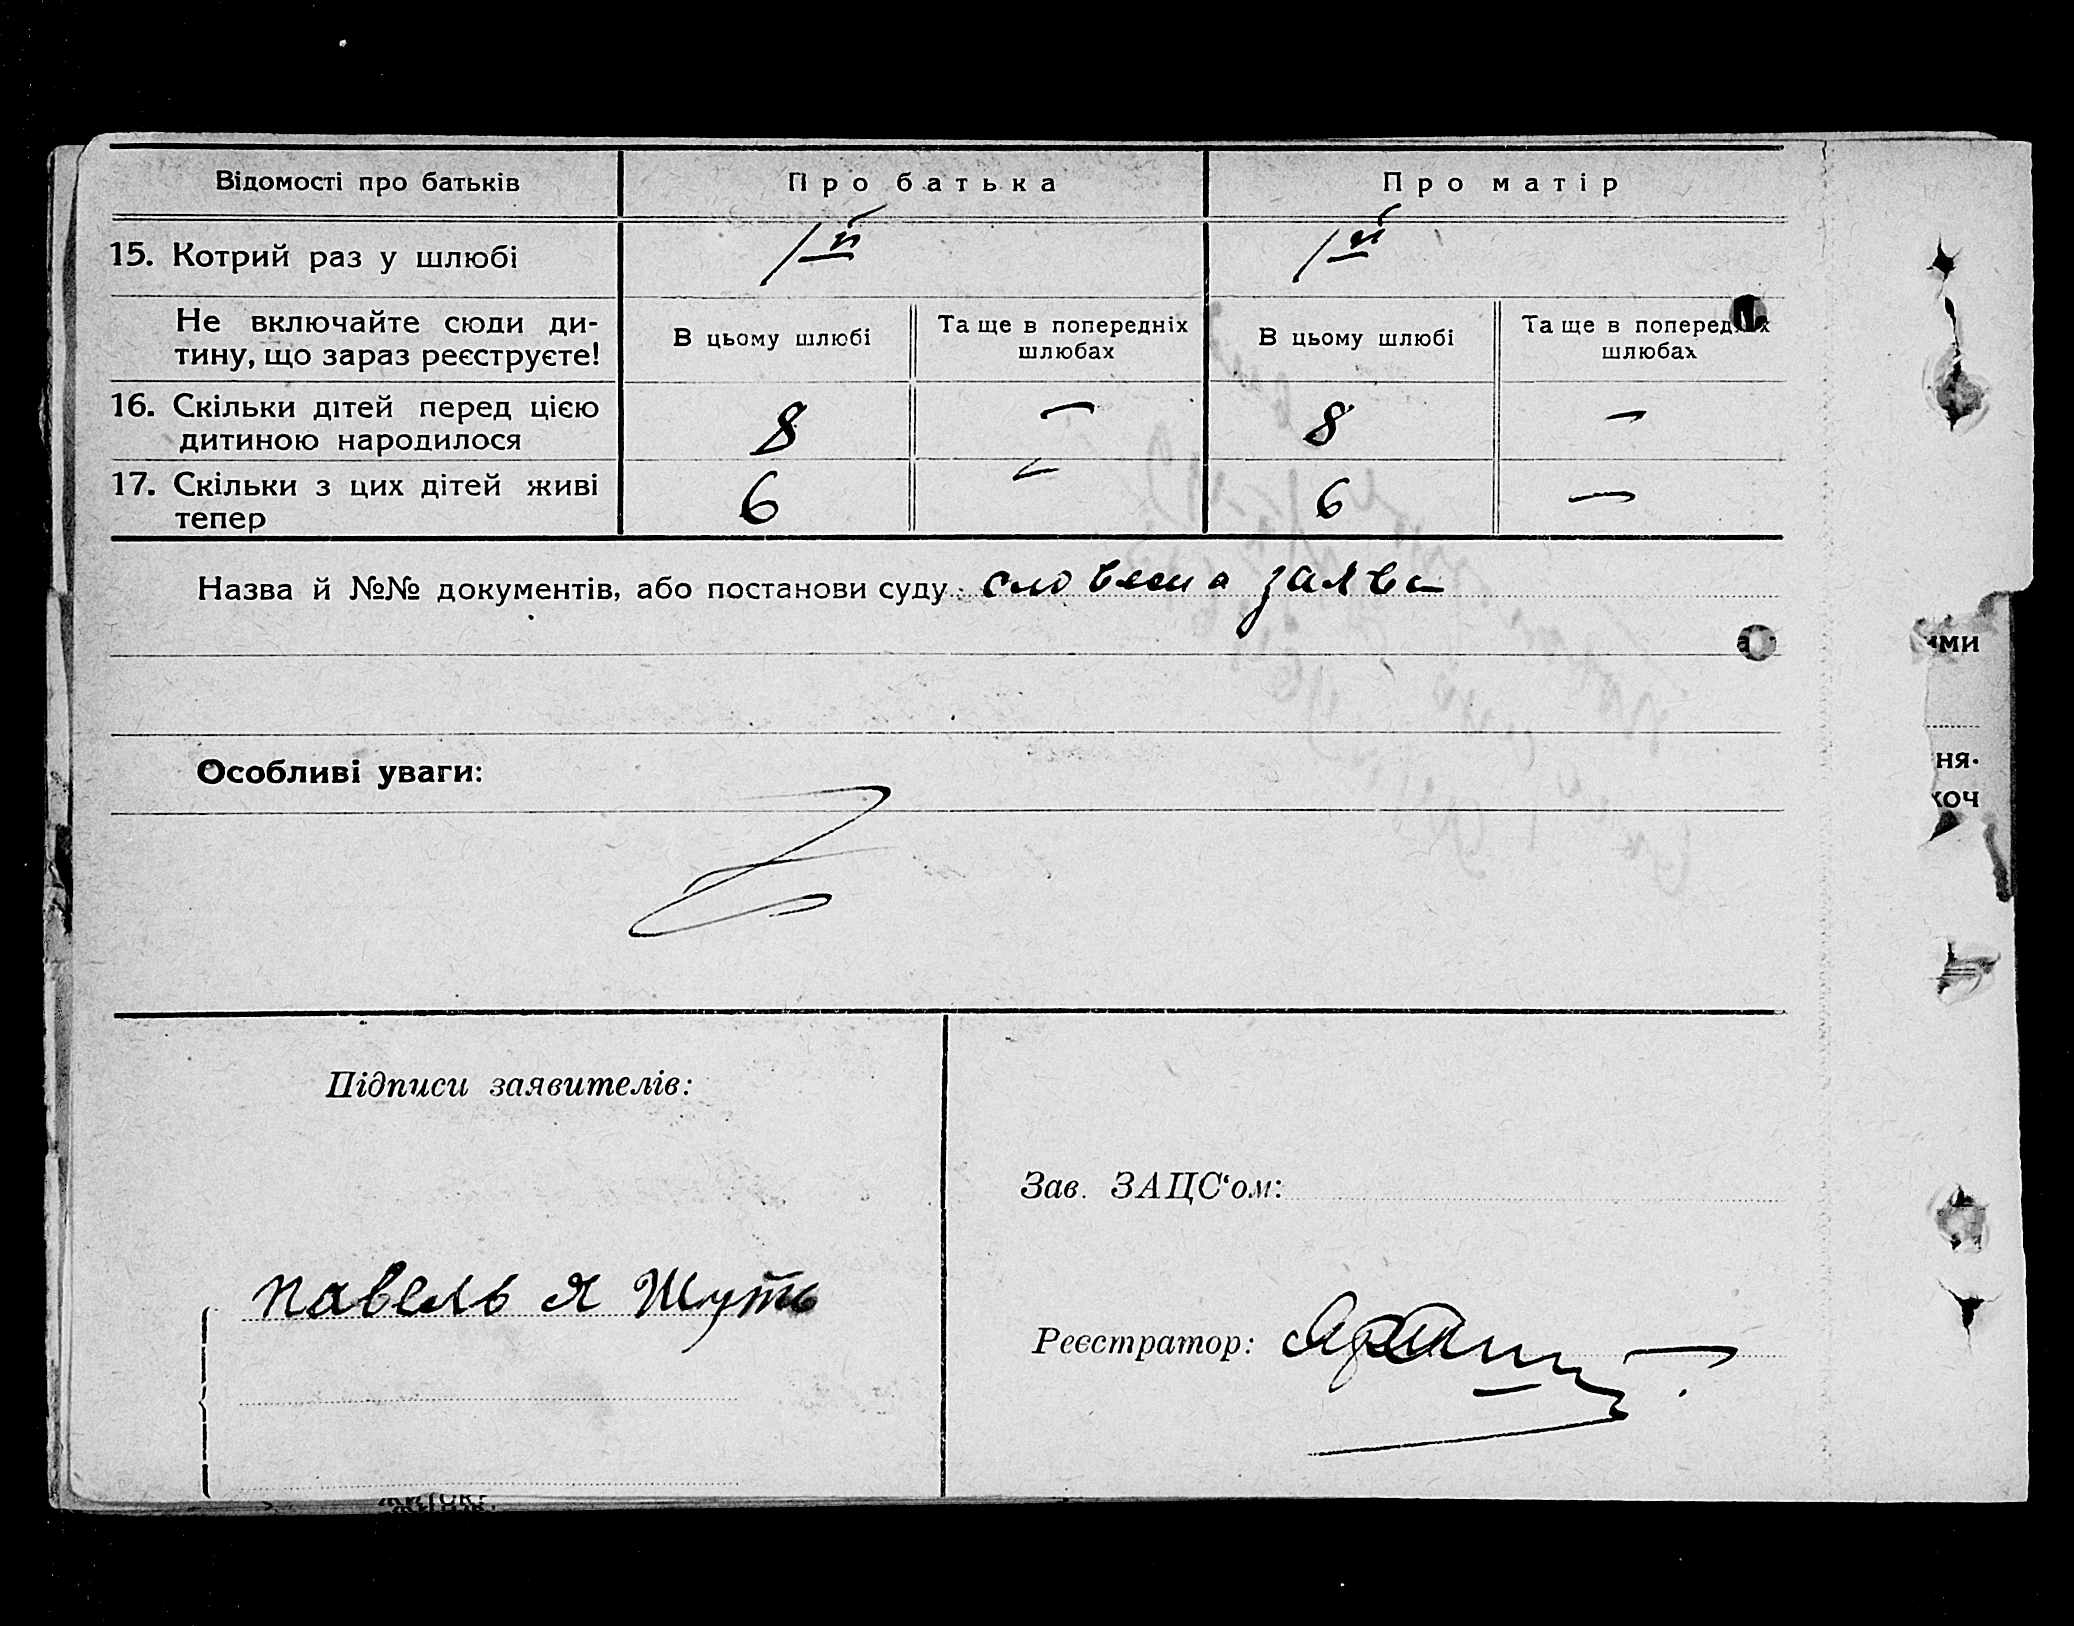 Відомості про батьків Про батька Про матір
15. Котрий раз у шлюбі 1й 1й
Не включайте сюди ди-
тину, що зараз реєструєте!
В цьому шлюбі Та ще в попередніх
шлюбах
В цьому шлюбі Та ще в попередніх
шлюбах
16. Скільки дітей перед цією
дитиною народилося
8 — 8 —
17. Скільки з цих дітей живі
тепер
6 — 6 —
Назва й №№ документів, або постанови суду: словесна заява
Особливі уваги:
Підписи заявителів:
павель я Шуть
Зав. ЗАЦС‘ом:
Реєстратор:
ими
ня-
хоч